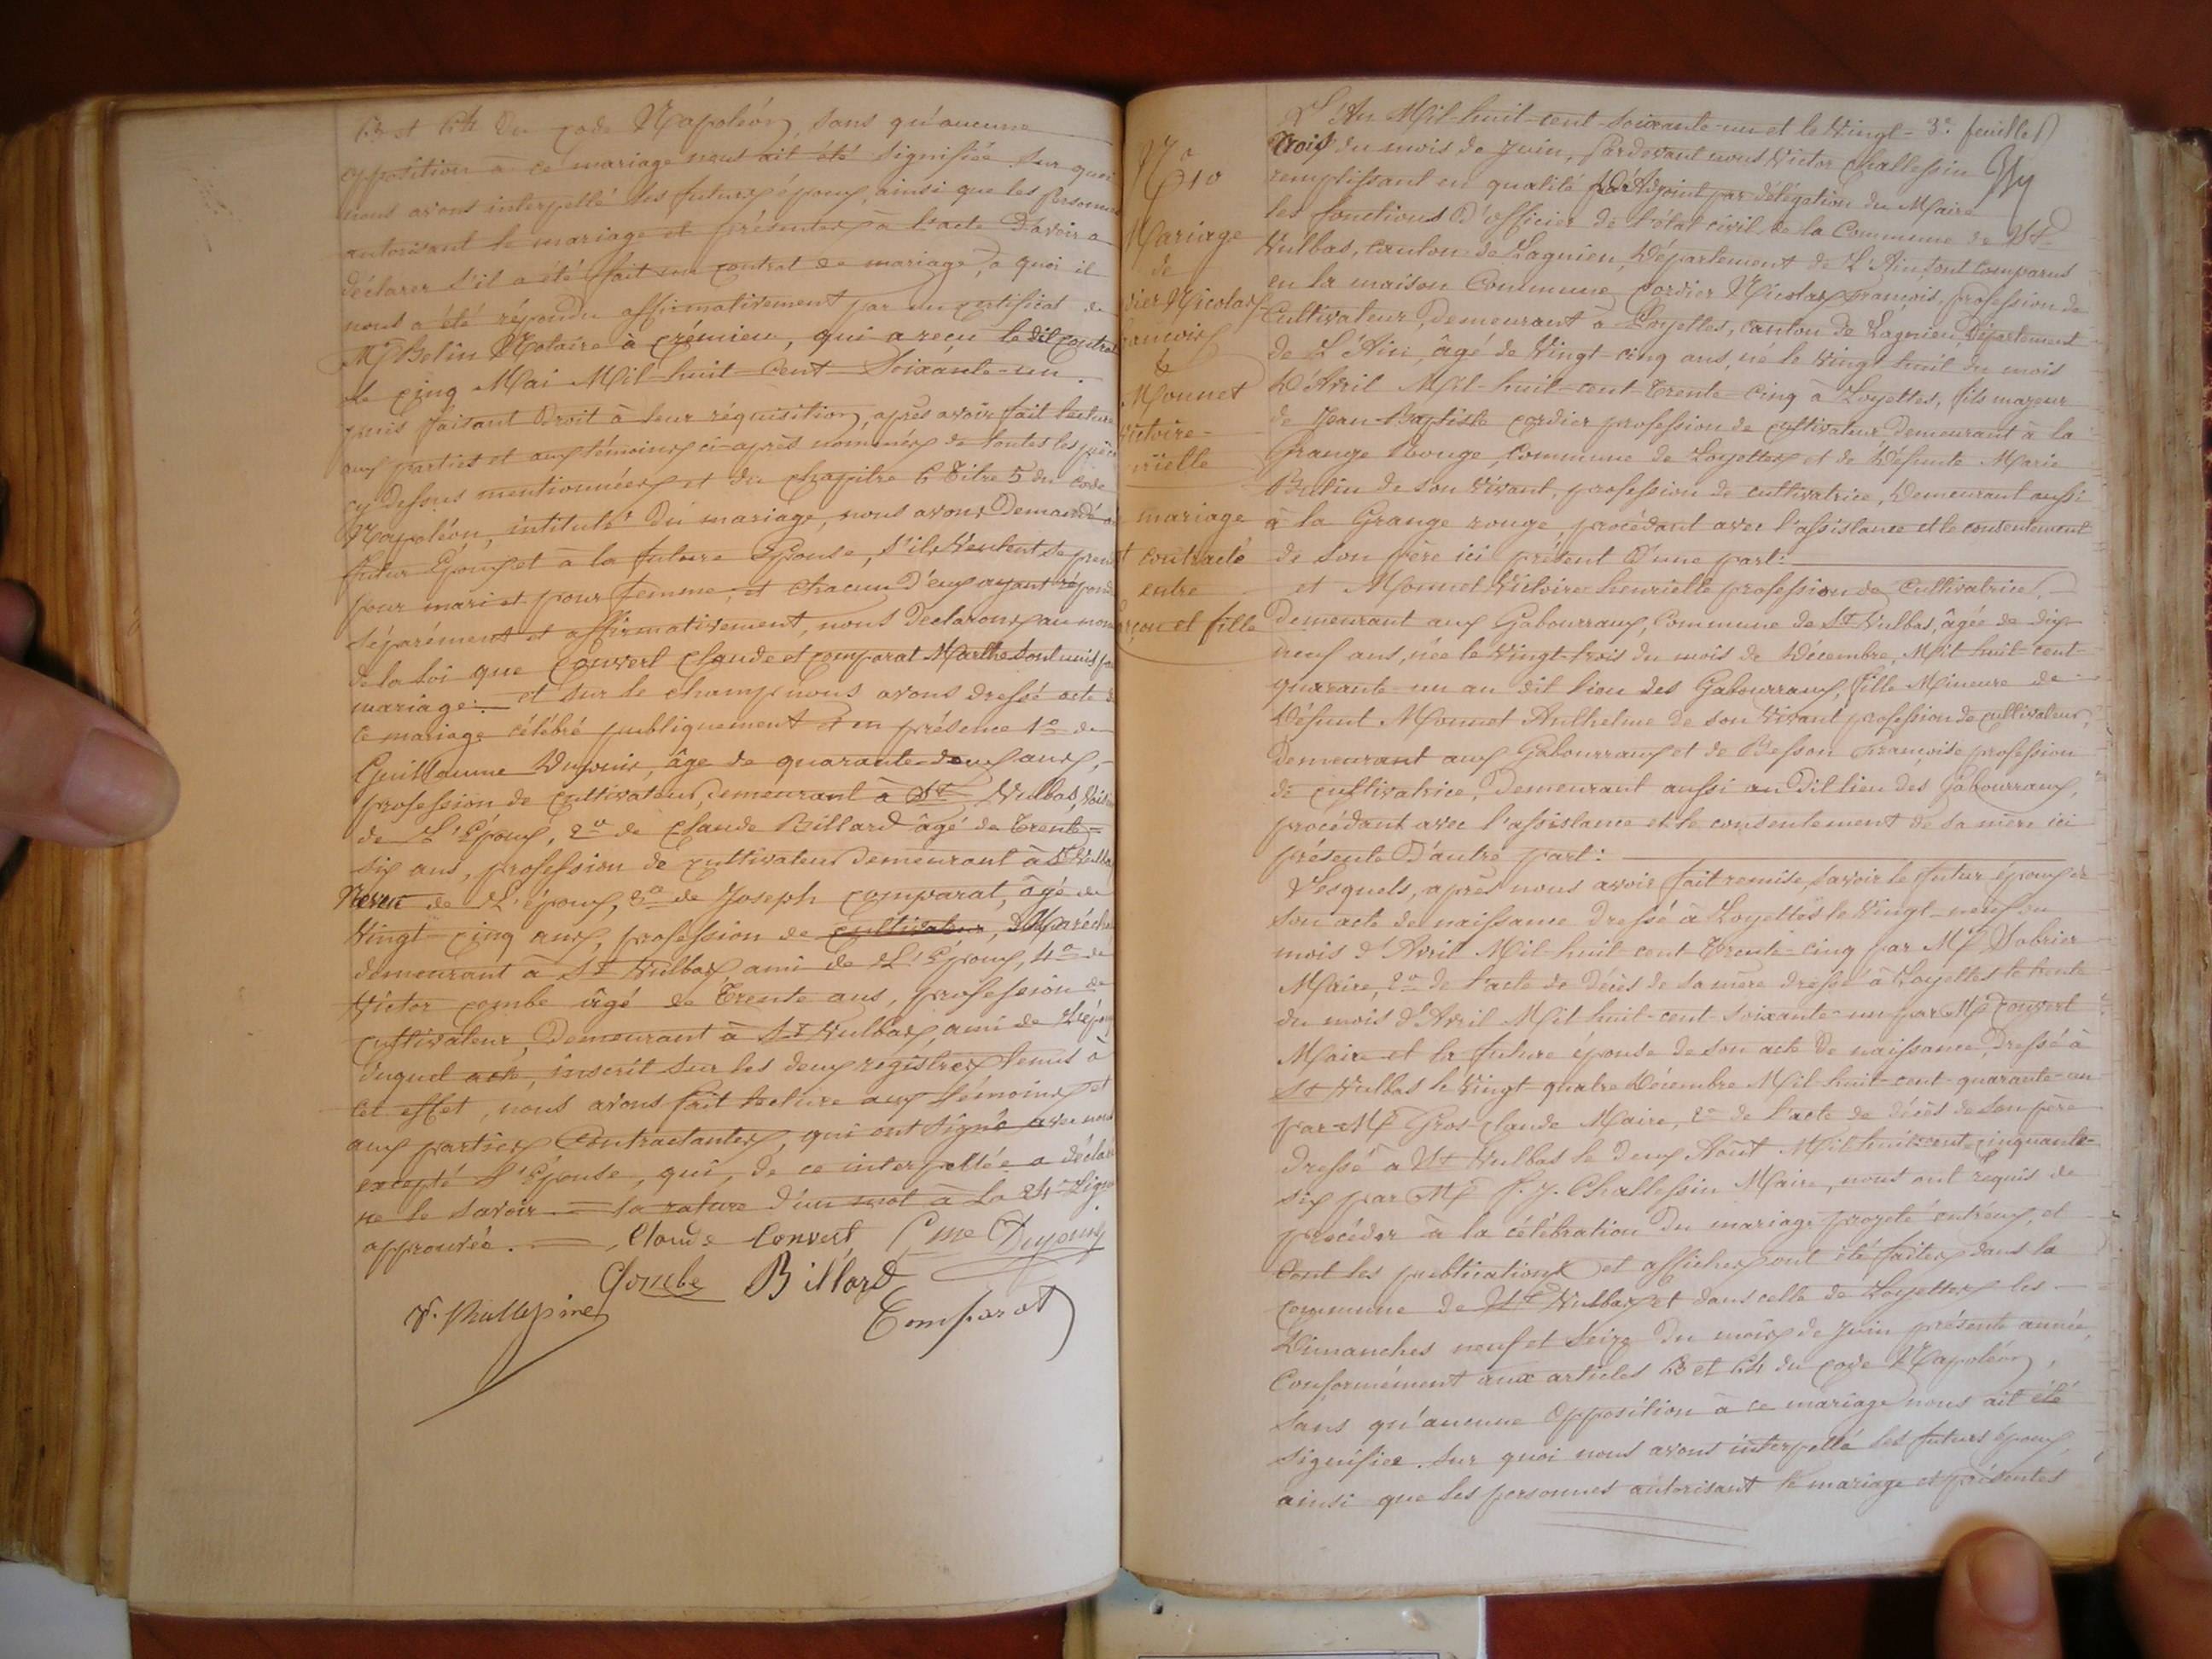 63 et 64 du code Napoléon, sans qu'aucune
opposition à ce mariage nous ait été signifiée. Sur quoi
nous avons interpellé les futurs époux, ainsi que les Personnes
autorisant le mariage et présentes à l'acte d'avoir a
déclarer s'il a été fait un contrat de mariage, a quoi il
nous a été répondu affirmativement par un certificat de
Mr Belin Notaire à Crémieu, qui a reçu le dit contrat
le cinq Mai Mil huit Cent Soixante-un.
puis faisant Droit à leur réquisition, après avoir fait lecture
aux parties et aux témoins ci-après nommés de toutes les pièces
cy Dessus mentionnées et du chapitre 6 Titre 5 du Code
Napoléon, intitulé du mariage, nous avons Demandé au
futur Epoux et à la future Epouse, s'ils veulent se prendre
pour mari et pour femme, et chacun d'eux ayant répondu
séparément et affirmativement, nous Declarons au nom
de la Loi que Convert Claude et Comparat Marthe sont unis par
mariage: et sur le champ nous avons dressé acte de
ce mariage célébré publiquement en présence 1º de
Guillaume Dupuis, âge de quarante-deux ans,
profession de Cultivateur, demeurant à St Vulbas, Voisin
de L'Epoux, 2º de Claude Billard âgé de Trente=
six ans, profession de cultivateur demeurant à St Vulbas
Neveu de L'époux, 3º de Joseph Comparat, âgé de
Vingt-cinq ans, profession de cultivateur, Maréchal
demeurant à St Vulbas ami de L'Epoux, 4º de
Victor Combe âgé de Trente ans, profession de
Cultivateur, Demeurant à St Vulbas, ami de L'époux
duquel acte, inscrit sur les deux régistres tenus à
cet effet, nous avons fait lecture aux témoins et
aux parties Contractantes, qui ont signé avec nous
excepté L'Epouse, qui, de ce interpellée a déclaré
ne le savoir = la rature d'un mot à la 24e Ligne
approuvée. = Claude Convert Gme Dupuis
Combe Billard
V. Challessine Comparat
3e feuillet
Nº
10
Mariage
de
dier Nicolas
rançois
&
Monnet
Victoire
rielle
mariage
t contracté
entre
rçon et fille
L'An Mil-huit-cent-soixante-un et le Vingt-
Trois du mois de Juin, Pardevant nous Victor Challessin
remplissant en qualité d'Adjoint par délégation du Maire
les fonctions D'officier de l'état civil de la Commune de St
Vulbas, Canton de Lagnieu, Département de L'Ain, sont comparus
en la maison Commune, Cordier Nicolas françois, profession de
Cultivateur, Demeurant à Loyettes, canton de Lagnieu, Département
de L'Ain, âgé de Vingt-cinq ans, né le Vingt huit du mois
D'Avril Mil-huit-cent-Trente-cinq à Loyettes, fils mageur
de Jean-Baptiste Cordier profession de cultivateur Demeurant à la
Grange Rouge, Commune de Loyettes et de Défunte Marie
Butin de son Vivant, profession de cultivatrice, Demeurant aussi
à la Grange rouge, procédant avec l'assistance et le consentement
de son père ici présent D'une part:
et Monnet Victoire henrielle profession de Cultivatrice,
Demeurant aux Gabourraux, Commune de St Vulbas, âgée de dix
neuf ans, née le Vingt-trois du mois de Décembre, Mil-huit-cent-
quarante-un au dit lieu des Gabourraux, fille Mineure de
Défunt Monnet Anthelme de son Vivant profession de cultivateur,
Demeurant aux Gabourraux et de Besson françoise profession
de cultivatrice, Demeurant aussi au dit lieu des Gabourraux,
procédant avec l'assistance et le consentement de sa mère ici
présente D'autre part:
Lesquels, après nous avoir fait remise, savoir le futur époux de
son acte de naissance dressé à Loyettes le Vingt-neuf du
mois d'Avril Mil-huit-cent-Trente-cinq par Mr Sabrier
Maire, 2º de l'acte de décès de sa mère dressé à Loyettes le trente
du mois d'Avril Mil huit-cent-soixante-un par Mr Convert
Maire et la future épouse de son acte de naissance, dressé à
St Vulbas le Vingt-quatre Décembre Mil-huit-cent-quarante-un
par Mr Gros Claude Maire, 2º de l'acte de décès de son père
dressé à St Vulbas le deux Août Mil-huit-cent-cinquante-
six par Mr F. J. Challessin Maire, nous ont requis de
procéder à la célébration du mariage projeté entr'eux, et
dont les publications et affiches ont été faites dans la
commune de St Vulbas et dans celle de Loyettes les
Dimanches neuf et seize du mois de juin présente année
Conformément aux articles 63 et 64 du code Napoléon,
Sans qu'aucune Opposition à ce mariage nous ait été
signifiée. Sur quoi nous avons interpellé les futurs époux,
ainsi que les personnes autorisant le mariage et présentes